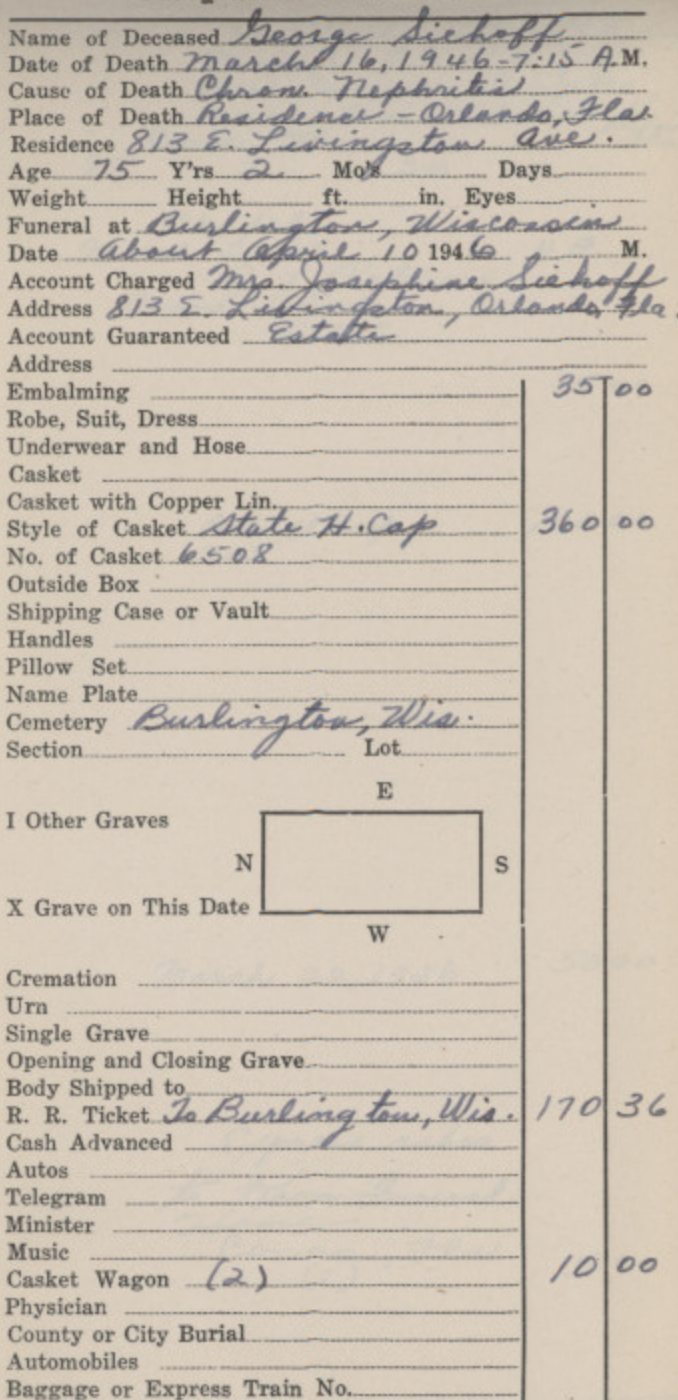 Name of Deceased George Siehoff
Date of Death March 16, 1946-7:15 A.M.
Cause of Death Chron. Nephritis
Place of Death Residence - Orlando, Fla.
Residence 813 E. Livingston Ave.
Age 75 Y'rs 2 Mo's Days
Weight Height ft. in. Eyes
Funeral at Burlington, Wisconsin
Date About April 10 1946 M.
Account Charged Mrs. Josephine Siehoff
Address 813 E. Livingston, Orlando, Fla.
Account Guaranteed Estate
Address
Embalming 35 00
Robe, Suit, Dress
Underwear and Hose
Casket
Casket with Copper Lin.
Style of Casket State H. Cap 360 00
No. of Casket 6508
Outside Box
Shipping Case or Vault
Handles
Pillow Set
Name Plate
Cemetery Burlington, Wis.
Section Lot
E
I Other Graves
N S
X Grave on This Date
W
Cremation
Urn
Single Grave
Opening and Closing Grave
Body Shipped to
R. R. Ticket To Burlington, Wis. 170 36
Cash Advanced
Autos
Telegram
Minister
Music
Casket Wagon (2) 10 00
Physician
County or City Burial
Automobiles
Baggage or Express Train No.